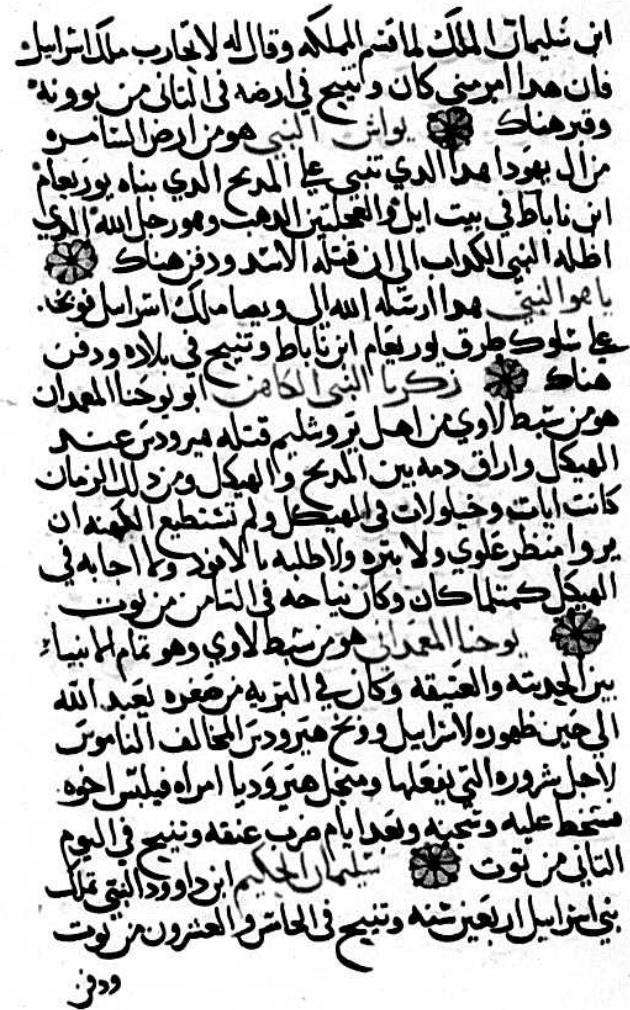 ابن سليمان الملك لما قسم المملكه وقال له لا تحارب ملك اسرايل
فان هدا امر مني كان وتنيح في ارضه في التانى من بوونة
وقبر هناك يواش النبي هو من ارض السامره
من ال يهودا هدا الدي تنبي علي المدبح الدي بناه يوربعام
ابن ناباط في بيت ايل والعجلتين الدهب وهو رجل الله الدي
اظله النبي الكداب الى ان قتله الاسد ودفن هناك
ياهو النبي هدا ارسله الله الى وبعصا ملك اسرايل فوبخه
علي سلوك طرق يوربعام ابن ناباط وتنيح في بلاده ودفن
هناك زكريا النبي الكاهن ابو يوحنا المعمدان
هو من سبط لاوي من اهل يروشليم قتله هيرودس عند
الهيكل واراق دمه بين المدبح والهيكل ومن دلك الزمان
كانت ايات وخيولات في الهيكل ولم تستطيع الكهنه ان
يروا منظر علوي ولا بتره ولا طلبه بالافود ولا اجابه في
الهيكل كمتلما كان وكان نياحه في التامن من توت
يوحنا المعمداني هو من سبط لاوي وهو تمام الانبياء
بين الحديته والعتيقه وكان في البريه من صغره يعبد الله
الي حين ظهوره لاسراييل ووبخ هيرودس المخالف الناموس
لاجل شروره التي يفعلها ومنجل هيروديا امراه فيلبس اخوه
فسخط عليه وسجنه وبعد ايام ضرب عنقه وتنيح في اليوم
التانى من توت سليمان الحكيم ابن داوود النبي تملك
بني اسراييل اربعين سنه وتنيح في الخامس والعشرون من توت
ودفن